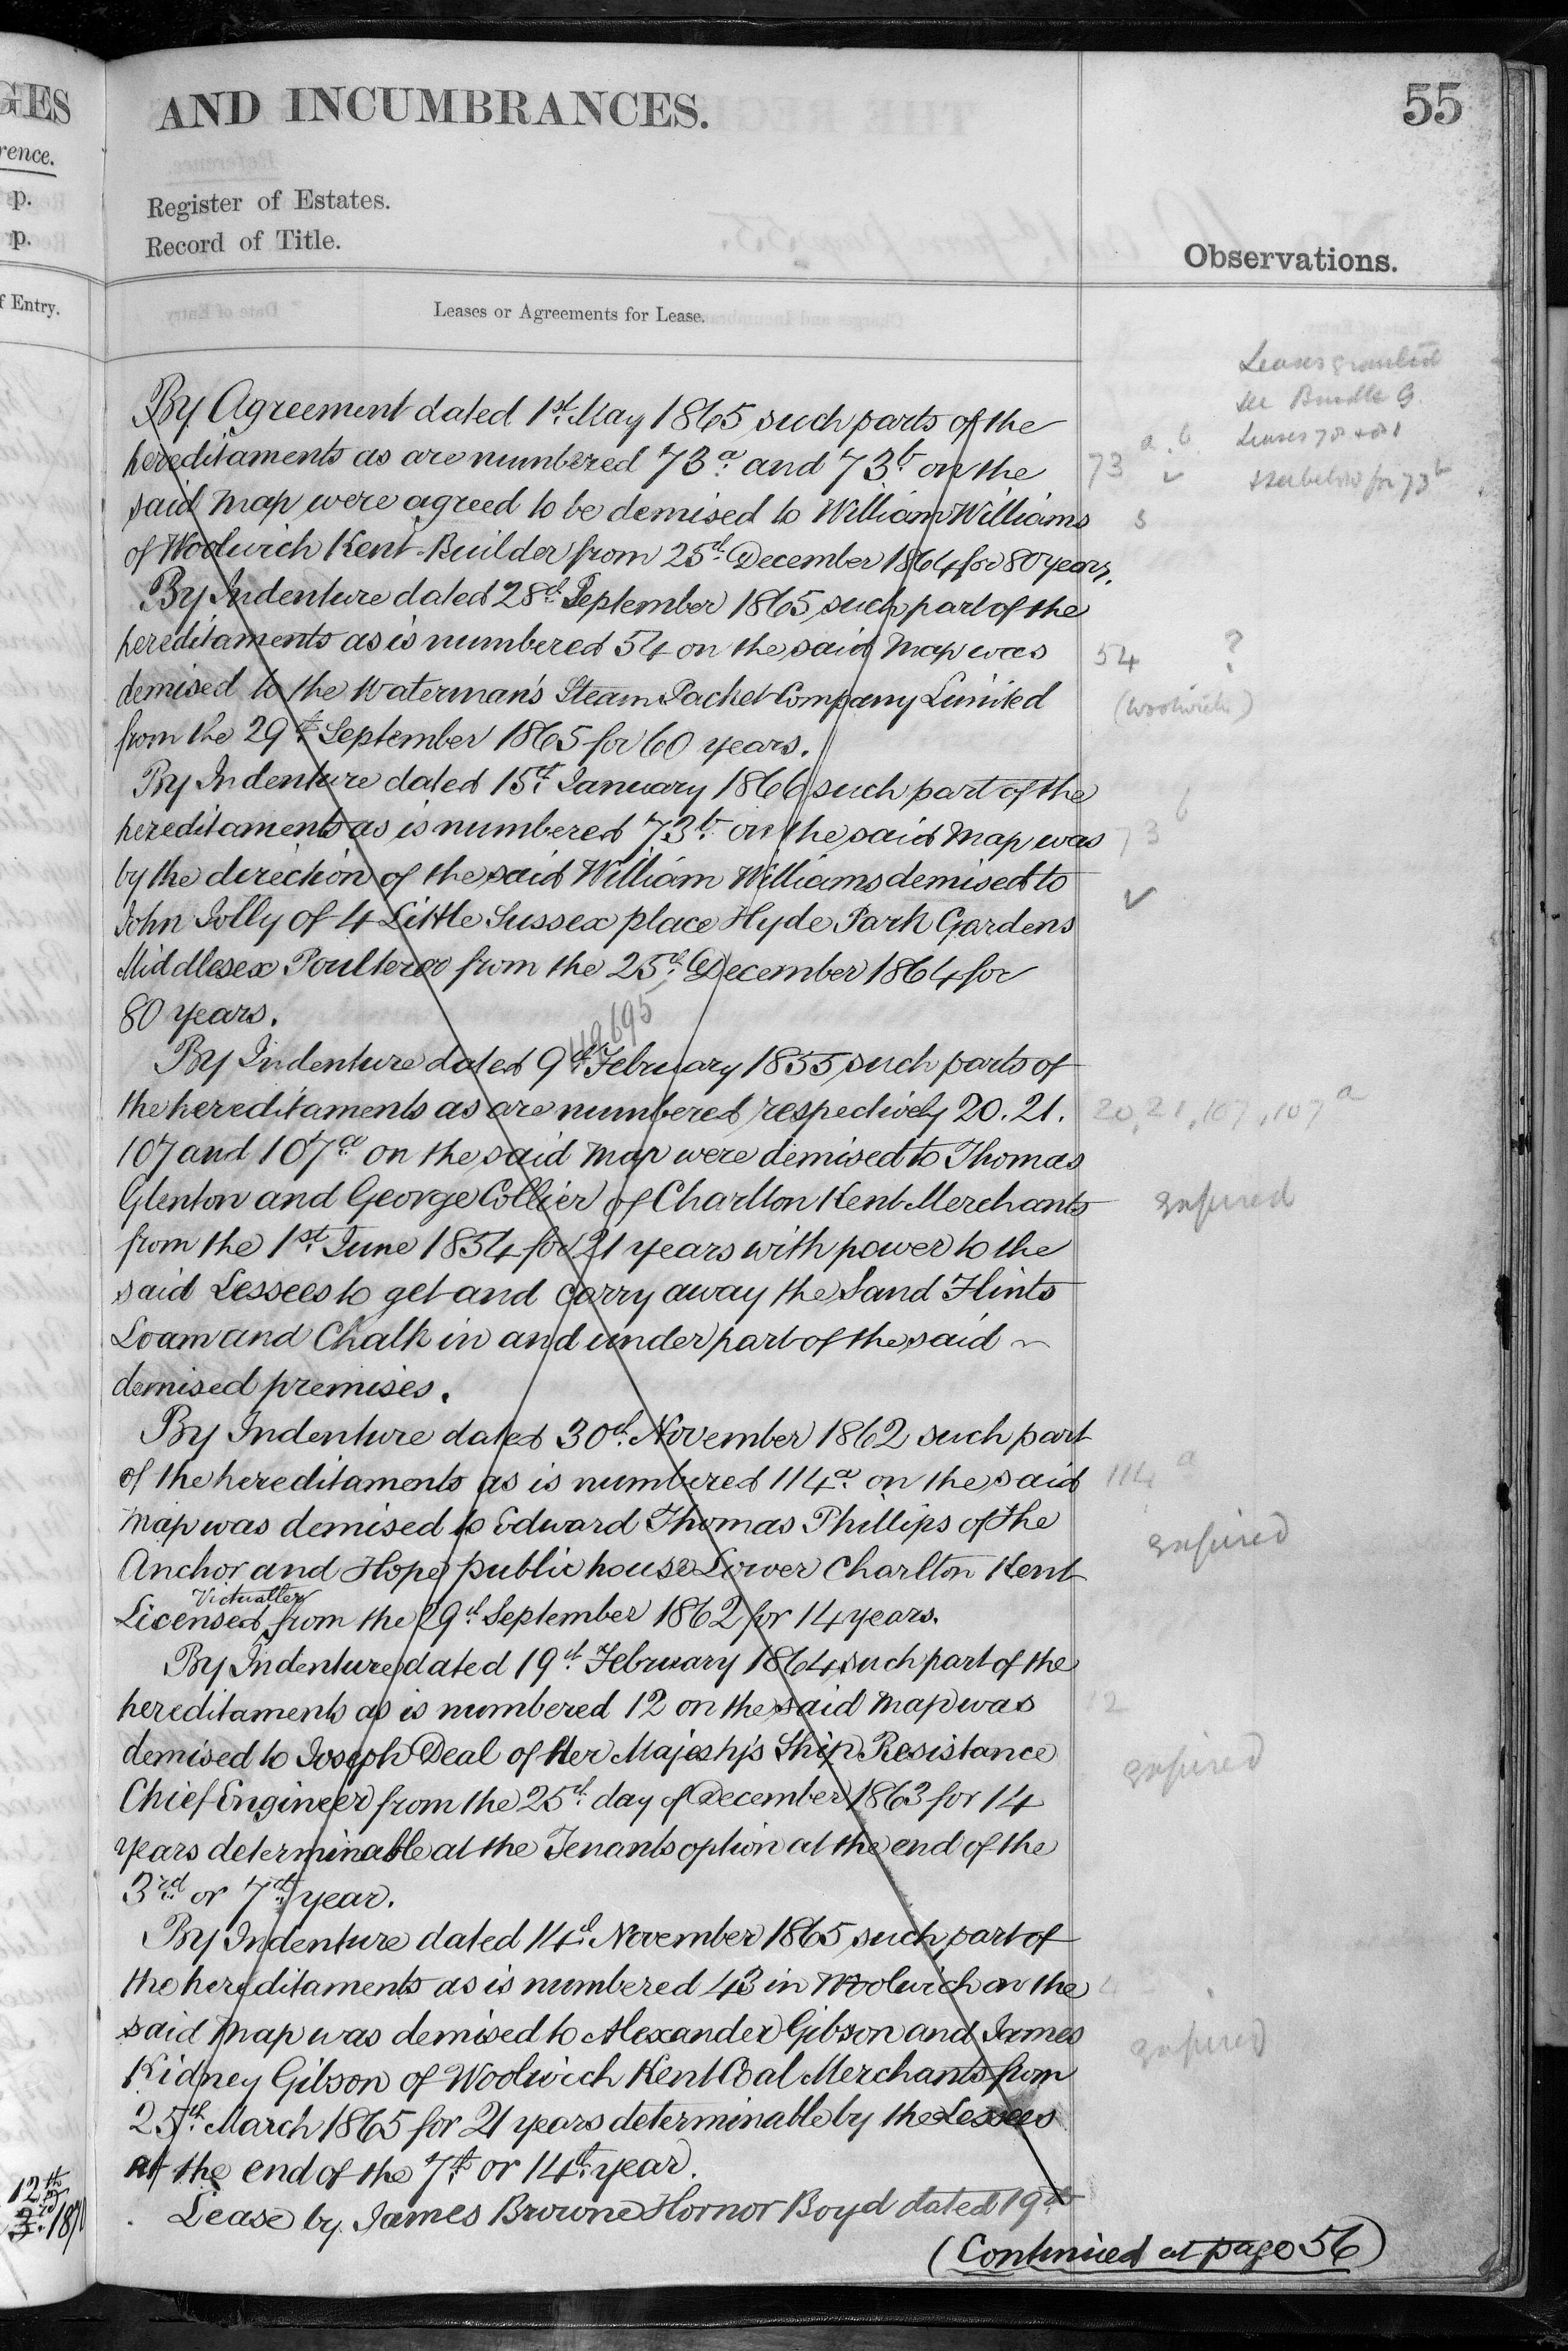 GES
AND INCUMBRANCES.
55
rence.
p.
Register of Estates.
p.
Record of Title.
Observations.
f Entry.
Leases or Agreements for Lease.
Leases granted
see Bundle G.
By Agreement dated 1st. May 1865 such parts of the
a. b Leases 78 + 81
hereditaments as are numbered 73a. and 73b. on the
73 ✓ see below for 73b
said map were agreed to be demised to William Williams
of Woolwich Kent Builder from 25th. December 1864 for 80 years.
By Indenture dated 28th. September 1865 such part of the
hereditaments as is numbered 54 on the said map was
54 ?
demised to the Waterman's Steam Packet Company Limited
(Woolwich)
from the 29th. September 1865 for 60 years.
By Indenture dated 15th. January 1866 such part of the
hereditaments as is numbered 73b. on the said map was
73 b
by the direction of the said William Williams demised to
✓
John Jolly of 4 Little Sussex place Hyde Park Gardens
Middlesex Poulterer from the 25th. December 1864 for
80 years.
49695
By Indenture dated 9th. February 1855 such parts of
the hereditaments as are numbered respectively 20. 21.
20, 21, 107, 107a
107 and 107a. on the said map were demised to Thomas
Glenton and George Collier of Charlton Kent Merchants
expired
from the 1st. June 1854 for 21 years with power to the
said Lessees to get and carry away the Sand Flints
Loam and Chalk in and under part of the said
demised premises.
By Indenture dated 30th. November 1862 such part
of the hereditaments as is numbered 114a. on the said
114 a
map was demised to Edward Thomas Phillips of the
expired
Anchor and Hope public house Lower Charlton Kent
Victualler
Licensed from the 29th September 1862 for 14 years.
By Indenture dated 19th. February 1864 such part of the
hereditaments as is numbered 12 on the said map was
12
demised to Joseph Deal of Her Majesty's Ship Resistance
expired
Chief Engineer from the 25th. day of December 1863 for 14
years determinable at the Tenants option at the end of the
3rd. or 7th. year.
By Indenture dated 14th. November 1865 such part of
the hereditaments as is numbered 43 in Woolwich on the
said map was demised to Alexander Gibson and James
expired
Kidney Gibson of Woolwich Kent Coal Merchants from
25th. March 1865 for 21 years determinable by the Lessees
at the end of the 7th. or 14th. year.
12th
Lease by James Browne Hornor Boyd dated 19th
(Continued at page 56)